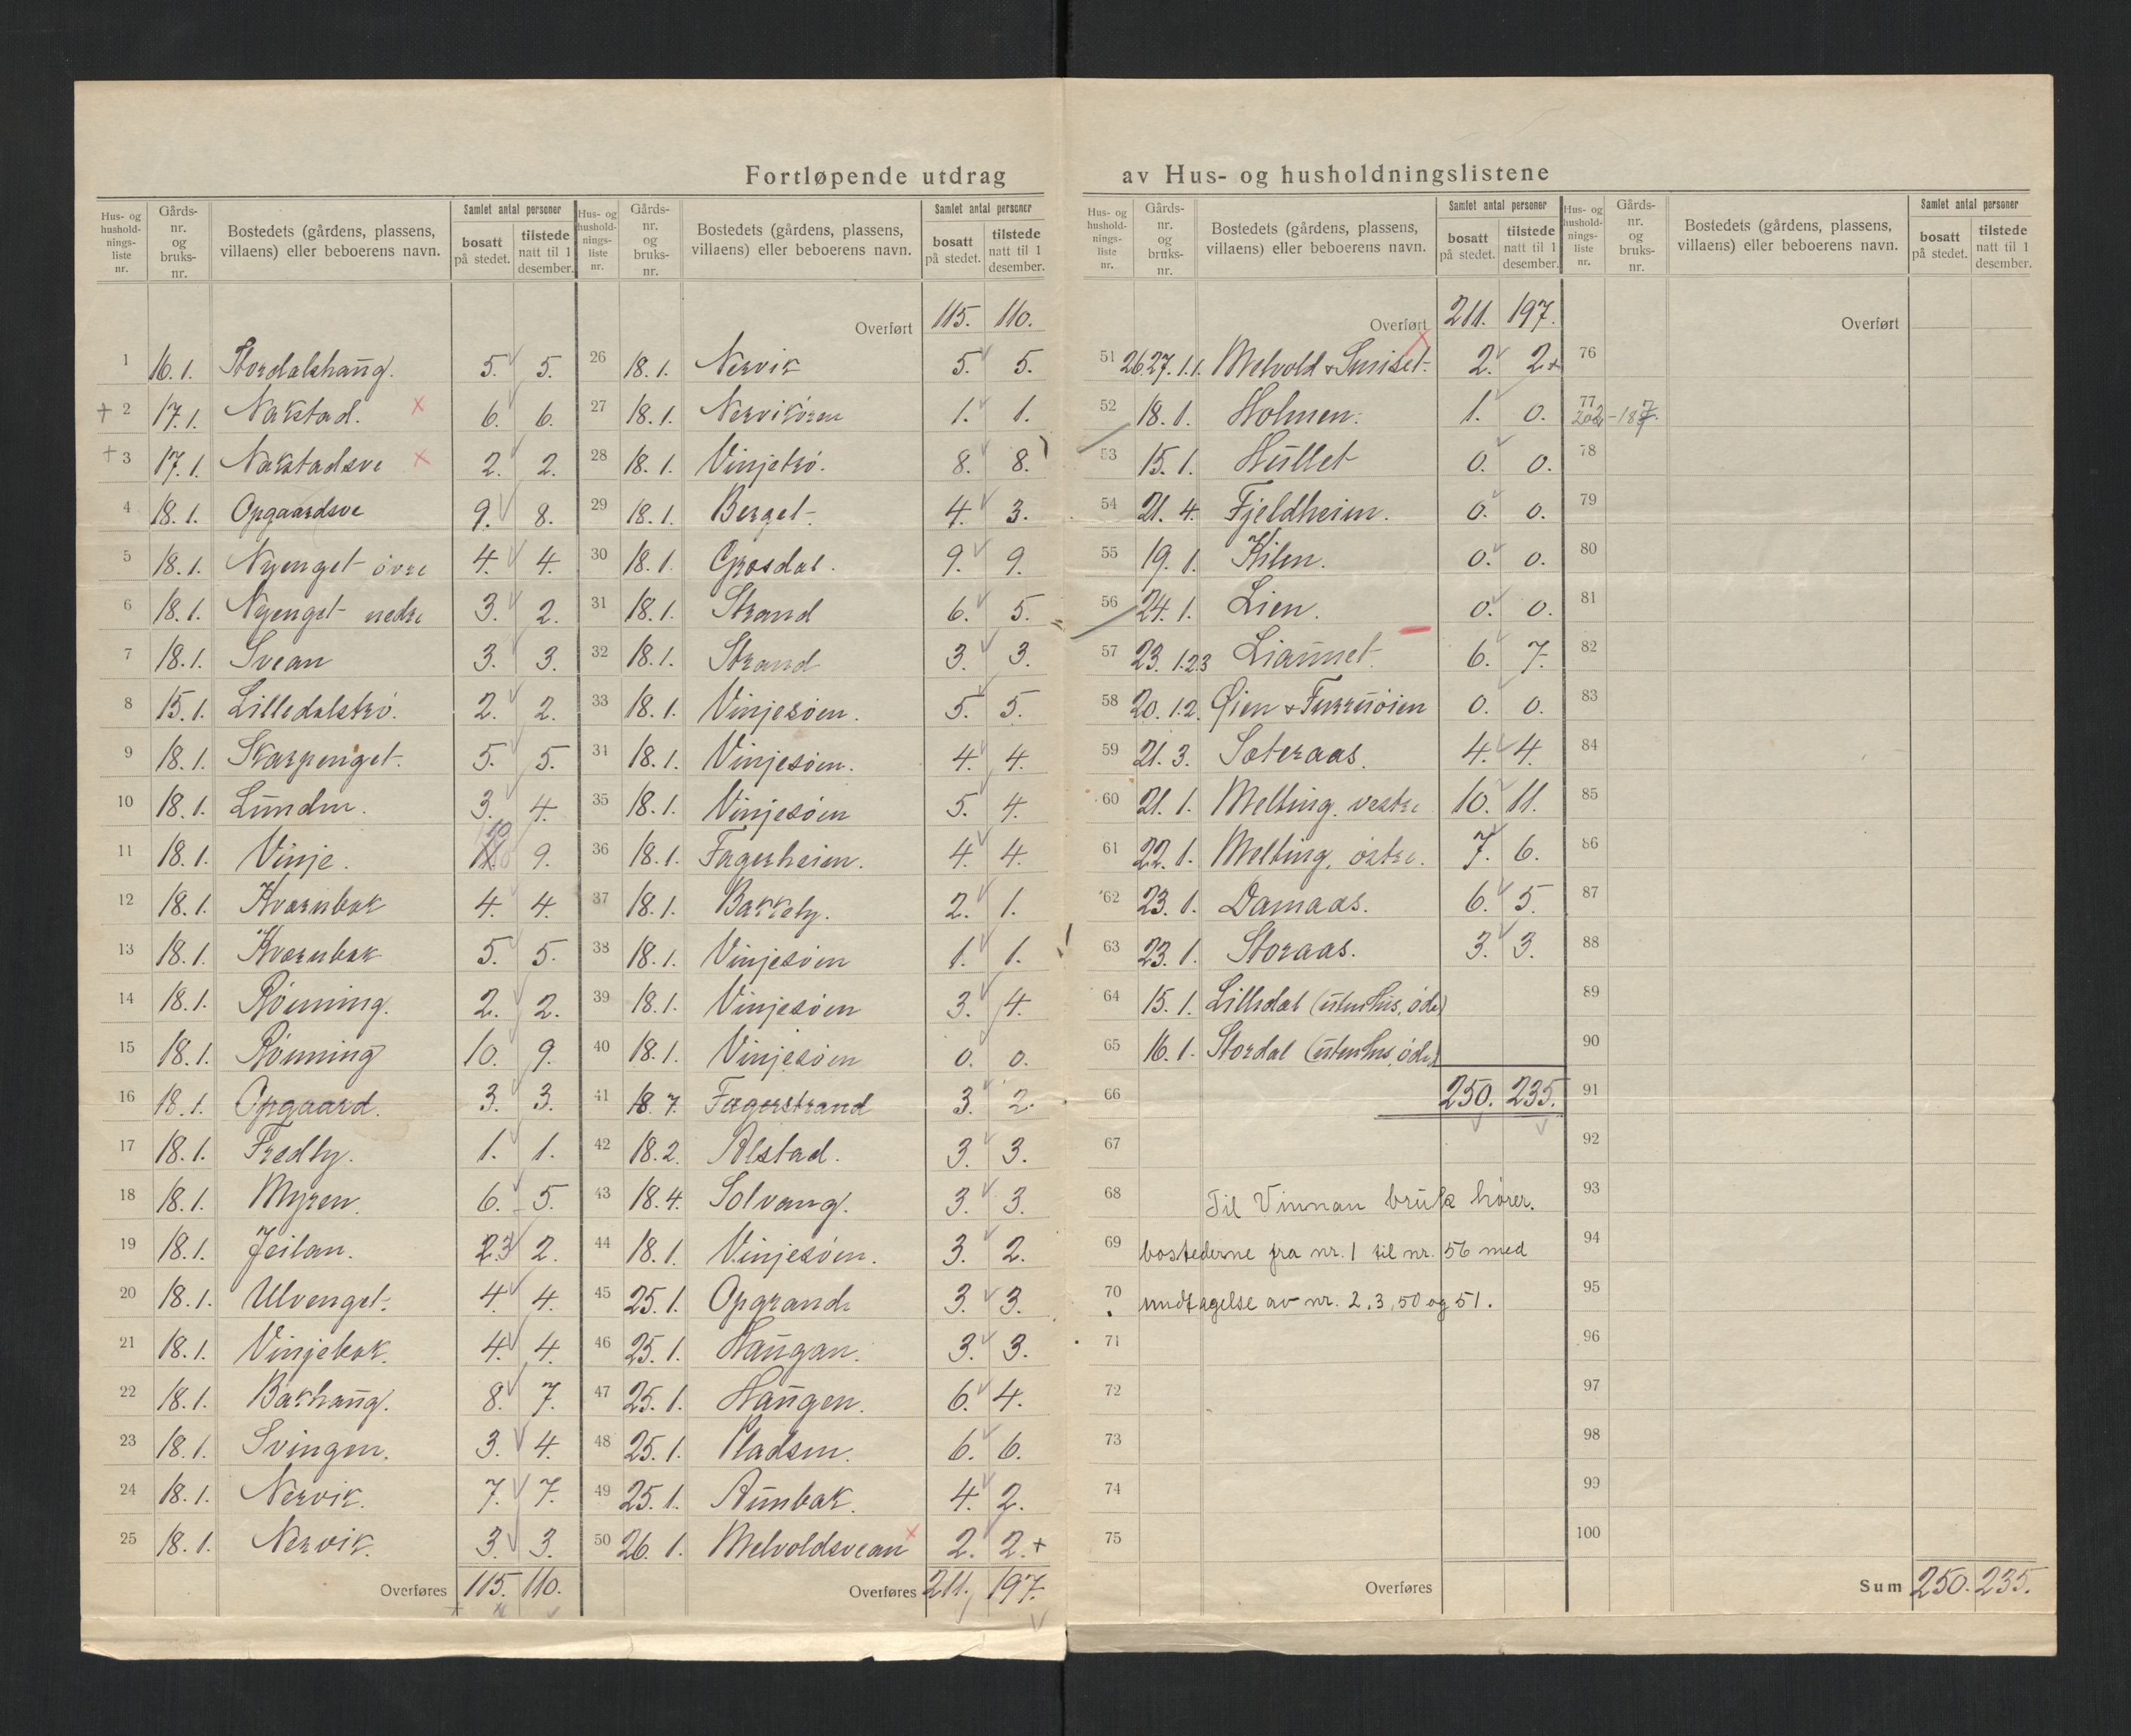 Fortløpende utdrag av Hus- og husholdningslistene
Hus- og hushold-nings-liste nr. Gårds-nr. og bruks-nr. Bostedets (gårdens, plassens, villaens) eller beboerens navn. Samlet antal personer bosatt på stedet. tilstede natt til 1 desember.
1 16.1. Stordalshaug. 5. 5.
+ 2 17.1. Nakstad. x 6. 6.
+ 3 17.1. Nakstadsve x 2. 2.
4 18.1. Opgaardsve 9. 8.
5 18.1. Nyenget øvre 4. 4.
6 18.1. Nyenget nedre 3. 2.
7 18.1. Svean 3. 3.
8 15.1. Lilledalstrø. 2. 2.
9 18.1. Skarpenget. 5. 5.
10 18.1. Lunden. 3. 4.
11 18.1. Vinje. 10 9.
12 18.1. Kvernbak 4. 4.
13 18.1. Kvernbak 5. 5.
14 18.1. Rønning. 2. 2.
15 18.1. Rønning 10. 9.
16 18.1. Opgaard. 3. 3.
17 18.1. Fredly. 1. 1.
18 18.1. Myren. 6. 5.
19 18.1. Jeilan. 23 2.
20 18.1. Ulvenget. 4. 4.
21 18.1. Vinjebak. 4. 4.
22 18.1. Bakhaug. 8. 7.
23 18.1. Svingen. 3. 4.
24 18.1. Nervik. 7. 7.
25 18.1. Nervik. 3. 3.
Overføres 115. 110.
Hus- og hushold-nings-liste nr. Gårds-nr. og bruks-nr. Bostedets (gårdens, plassens, villaens) eller beboerens navn. Samlet antal personer bosatt på stedet. tilstede natt til 1 desember.
Overført 115. 110.
26 18.1. Nervik 5. 5.
27 18.1. Nervikøren 1. 1.
28 18.1. Vinjetrø. 8. 8.
29 18.1. Berget. 4. 3.
30 18.1. Grøsdal. 9. 9.
31 18.1. Strand 6. 5.
32 18.1. Strand 3. 3.
33 18.1. Vinjesøen. 5. 5.
34 18.1. Vinjesøen. 4. 4.
35 18.1. Vinjesøen 5. 4.
36 18.1. Fagerheim. 4. 4.
37 18.1. Bakkely. 2. 1.
38 18.1. Vinjesøen 1. 1.
39 18.1. Vinjesøen 3. 4.
40 18.1. Vinjesøen 0. 0.
41 18.7. Fagerstrand 3. 2.
42 18.2. Alstad. 3. 3.
43 18.4. Solvang. 3. 3.
44 18.1. Vinjesøen. 3. 2.
45 25.1. Opgrande 3. 3.
46 25.1. Haugan. 3. 3.
47 25.1. Haugen. 6. 4.
48 25.1. Pladsen. 6. 6.
49 25.1. Aunbak. 4. 2.
50 26.1. Melvoldsvean x 2. 2. +
Overføres 211. 197.
Hus- og hushold-nings-liste nr. Gårds-nr. og bruks-nr. Bostedets (gårdens, plassens, villaens) eller beboerens navn. Samlet antal personer bosatt på stedet. tilstede natt til 1 desember.
Overført 211. 197.
51 26.27. 1.1. Melvold & Suuset. x 2. 2 +
52 18.1. Holmen. 1. 0.
53 15.1. Hullet 0. 0.
54 21.4. Fjeldheim. 0. 0.
55 19.1. Kilen. 0. 0.
56 24.1. Lien. 0. 0.
57 23. 1.2.3 Liaunet. 6. 7.
58 20. 1.2. Øien & Furruøien 0. 0.
59 21.3. Sæteraas. 4. 4.
60 21.1. Melting, vestre 10. 11.
61 22.1. Melting, østre. 7. 6.
62 23.1. Damaas. 6. 5.
63 23.1. Storaas. 3. 3.
64 15.1. Lilledal (uten hus, øde)
65 16.1. Stordal (uten hus, øde)
66 250. 235.
67
68 Til Vinnan bruk hører.
69 bostederne fra nr. 1 til nr. 56 med
70 undtagelse av nr. 2, 3, 50 og 51.
71
72
73
74
75
Overføres
Hus- og hushold-nings-liste nr. Gårds-nr. og bruks-nr. Bostedets (gårdens, plassens, villaens) eller beboerens navn. Samlet antal personer bosatt på stedet. tilstede natt til 1 desember.
Overført
76
77 202-187.
78
79
80
81
82
83
84
85
86
87
88
89
90
91
92
93
94
95
96
97
98
99
100
Sum 250. 235.